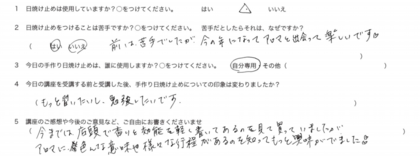 1 日焼け止めを使用していますか？○をつけてください。 はい △ いいえ
2 日焼け止めをつけることは苦手ですか？○をつけてください。 苦手だとしたらそれは、なぜですか？
( はい いいえ 前は苦手でしたが 今の年になって アロマと出会って 楽しいです
3 今日の手作り日焼け止めは、誰に使用しますか？○をつけてください。 自分専用・その他(
4 今日の講座を受講する前と受講した後、手作り日焼け止めについての印象は変わりましたか？
(もっと習いたいし、勉強したいです。
5 講座のご感想や今後のご意見など、ご自由にお書きくださいませ
(今までは店頭で香りと効能を軽く書いてあるのを見て買っていましたが
アロマに 意味や様々な行程があるのを知ってもっと興味がでました